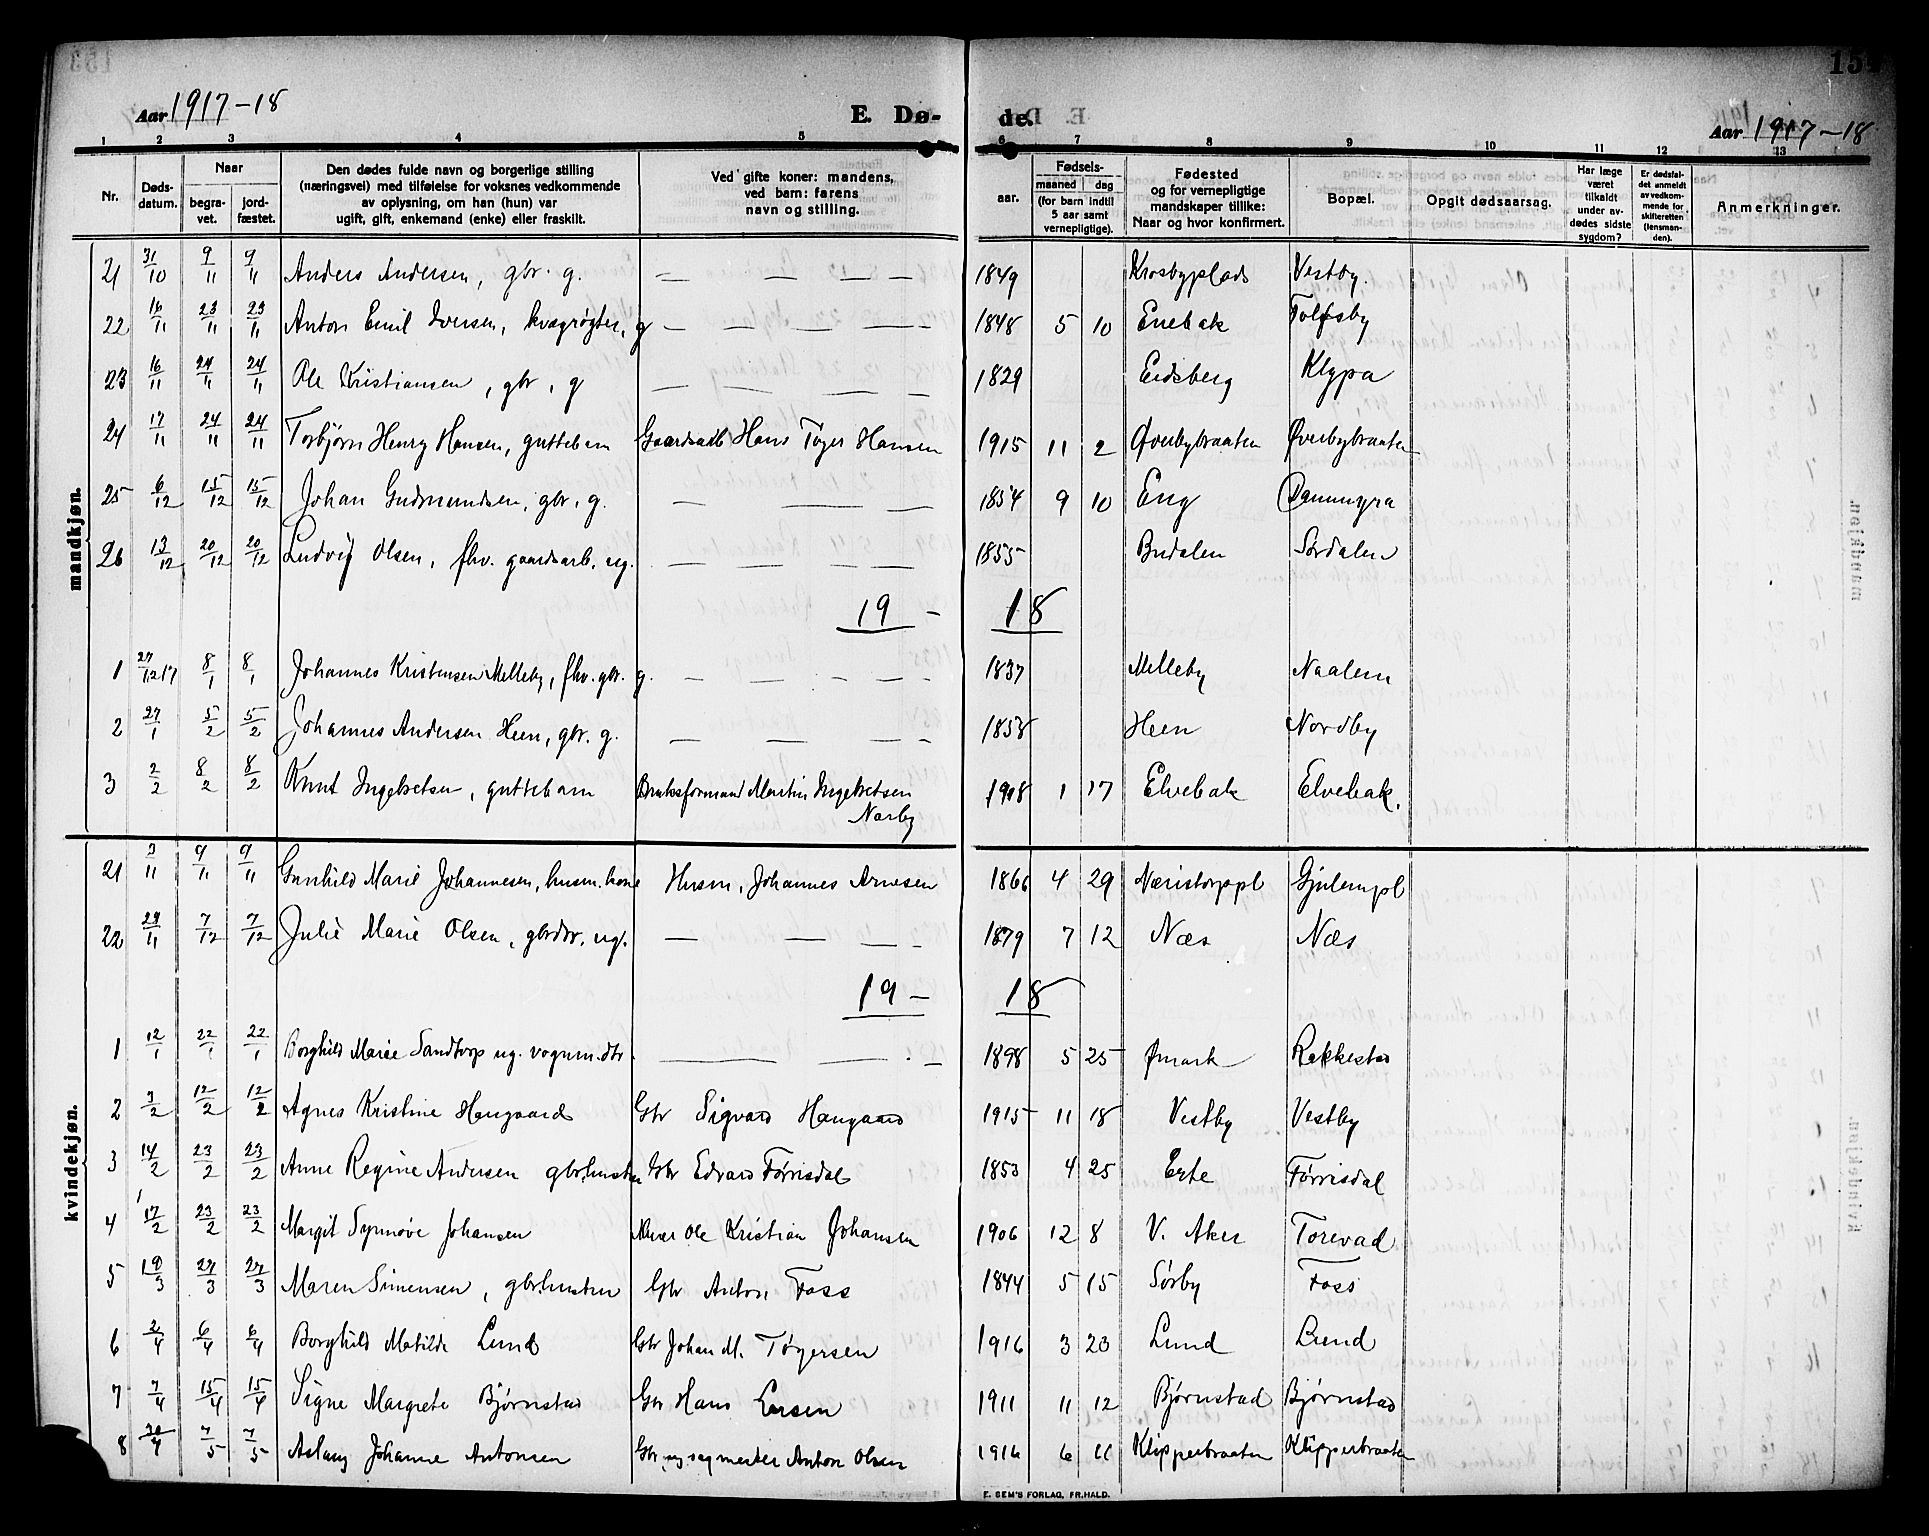 Aar 1917-18
E. Dø-
de.
Aar 1917-18
1 2 3 4 5 6 7 8 9 10 11 12 13
Nr.
Døds-
datum.
Naar
begra-
vet.
jord-
fæstet.
Den dødes fulde navn og borgerlige stilling
(næringsvei) med tilføielse for voksnes vedkommende
av oplysning, om han (hun) var
ugift, gift, enkemand (enke) eller fraskilt.
Ved gifte koner: mandens,
ved barn: farens
navn og stilling.
Fødsels-
aar.
maaned dag
(for barn indtil
5 aar samt
vernepligtige).
Fødested
og for vernepligtige
mandskaper tillike:
Naar og hvor konfirmert.
Bopæl.
Opgit dødsaarsag.
Har læge
været
tilkaldt
under av-
dødes sidste
sygdom?
Er dødsfal-
det anmeldt
av vedkom-
mende for
skifteretten
(lensman-
den).
Anmerkninger.
mandkjøn.
21 31/10 9/11 9/11 Anders Andersen, gbr. g. — — — — 1849 Krosbyplads Vestby.
22 16/11 23/11 23/11 Anton Emil Iversen, kvægrøgter, g — — — — 1848 5 10 Enebak Tolfsby
23 16/11 24/11 24/11 Ole Kristiansen, gbr, g — — — — 1829 Eidsberg Klypa
24 17/11 24/11 24/11 Torbjørn Henry Hansen, guttebarn Gaardsarb Hans Tøger Hansen 1915 11 2 Øverbybraaten Øverbybraaten
25 6/12 15/12 15/12 Johan Gudmundsen, gbr. g. — — — 1854 9 10 Eng
26 13/12 20/12 20/12 Ludvig Olsen, fhv. gaardsarb. ug. — — — — 1855 Budalen Sørdalen
19 - 18
1 27/12 17 8/1 8/1 Johannes Kristensen Melleby, fhv. gbr. g. — — — — 1837 Melleby Naalem
2 27/1 5/2 5/2 Johannes Andersen Heen, gbr. g. — — — — 1858 Heen Nordby
3 2/2 8/2 8/2 Knut Ingebretsen, guttebarn Bruksformand Martin Ingebretsen 1918 1 17 Elvebak Elvebak.
Narby
kvindekjøn.
21 3/11 9/11 9/11 Gunhild Marie Johannesen, husm. kone Husm, Johannes Arnesen 1866 4 29 Næristorppl Gjulempl
22 29/11 7/12 7/12 Julie Marie Olsen, gbrdtr. ug. — — — — 1879 7 12 Næs Næs
19 - 18
1 12/1 22/1 22/1 Borghild Marie Sandtorp ug. vognm. dtr. — — — 1898 5 25 Ømark Rakkestad
2 3/2 12/2 12/2 Agnes Kristine Haugaard Gbr Sigvard Haugaard 1915 11 18 Vestby Vestby
3 14/2 23/2 23/2 Anne Regine Andersen gbrhustru Gbr Edvard Førrisdal 1853 4 25 Erte Førrisdal
4 17/2 23/2 23/2 Margit Synnøve Johansen Ole Kristian Johansen 1906 12 8 V. Aker Torevad
5 19/3 27/3 27/3 Maren Simensen, gbrhustru Gbr Anton Foss 1844 5 15 Sørby Foss
6 2/4 6/4 6/4 Borghild Matilde Lund Gbr Johan M. Tøgersen 1916 3 23 Lund Lund
7 7/4 15/4 15/4 Signe Margrete Bjørnstad Gbr Hans Larsen 1911 11 12 Bjørnstad Bjørnstad
8 30/4 7/5 7/5 Aslaug Johanne Antonsen Gbr og sagmester Anton Olsen 1916 6 11 Klipperbraaten Klipperbraaten
E. SEM'S FORLAG, FR.HALD.